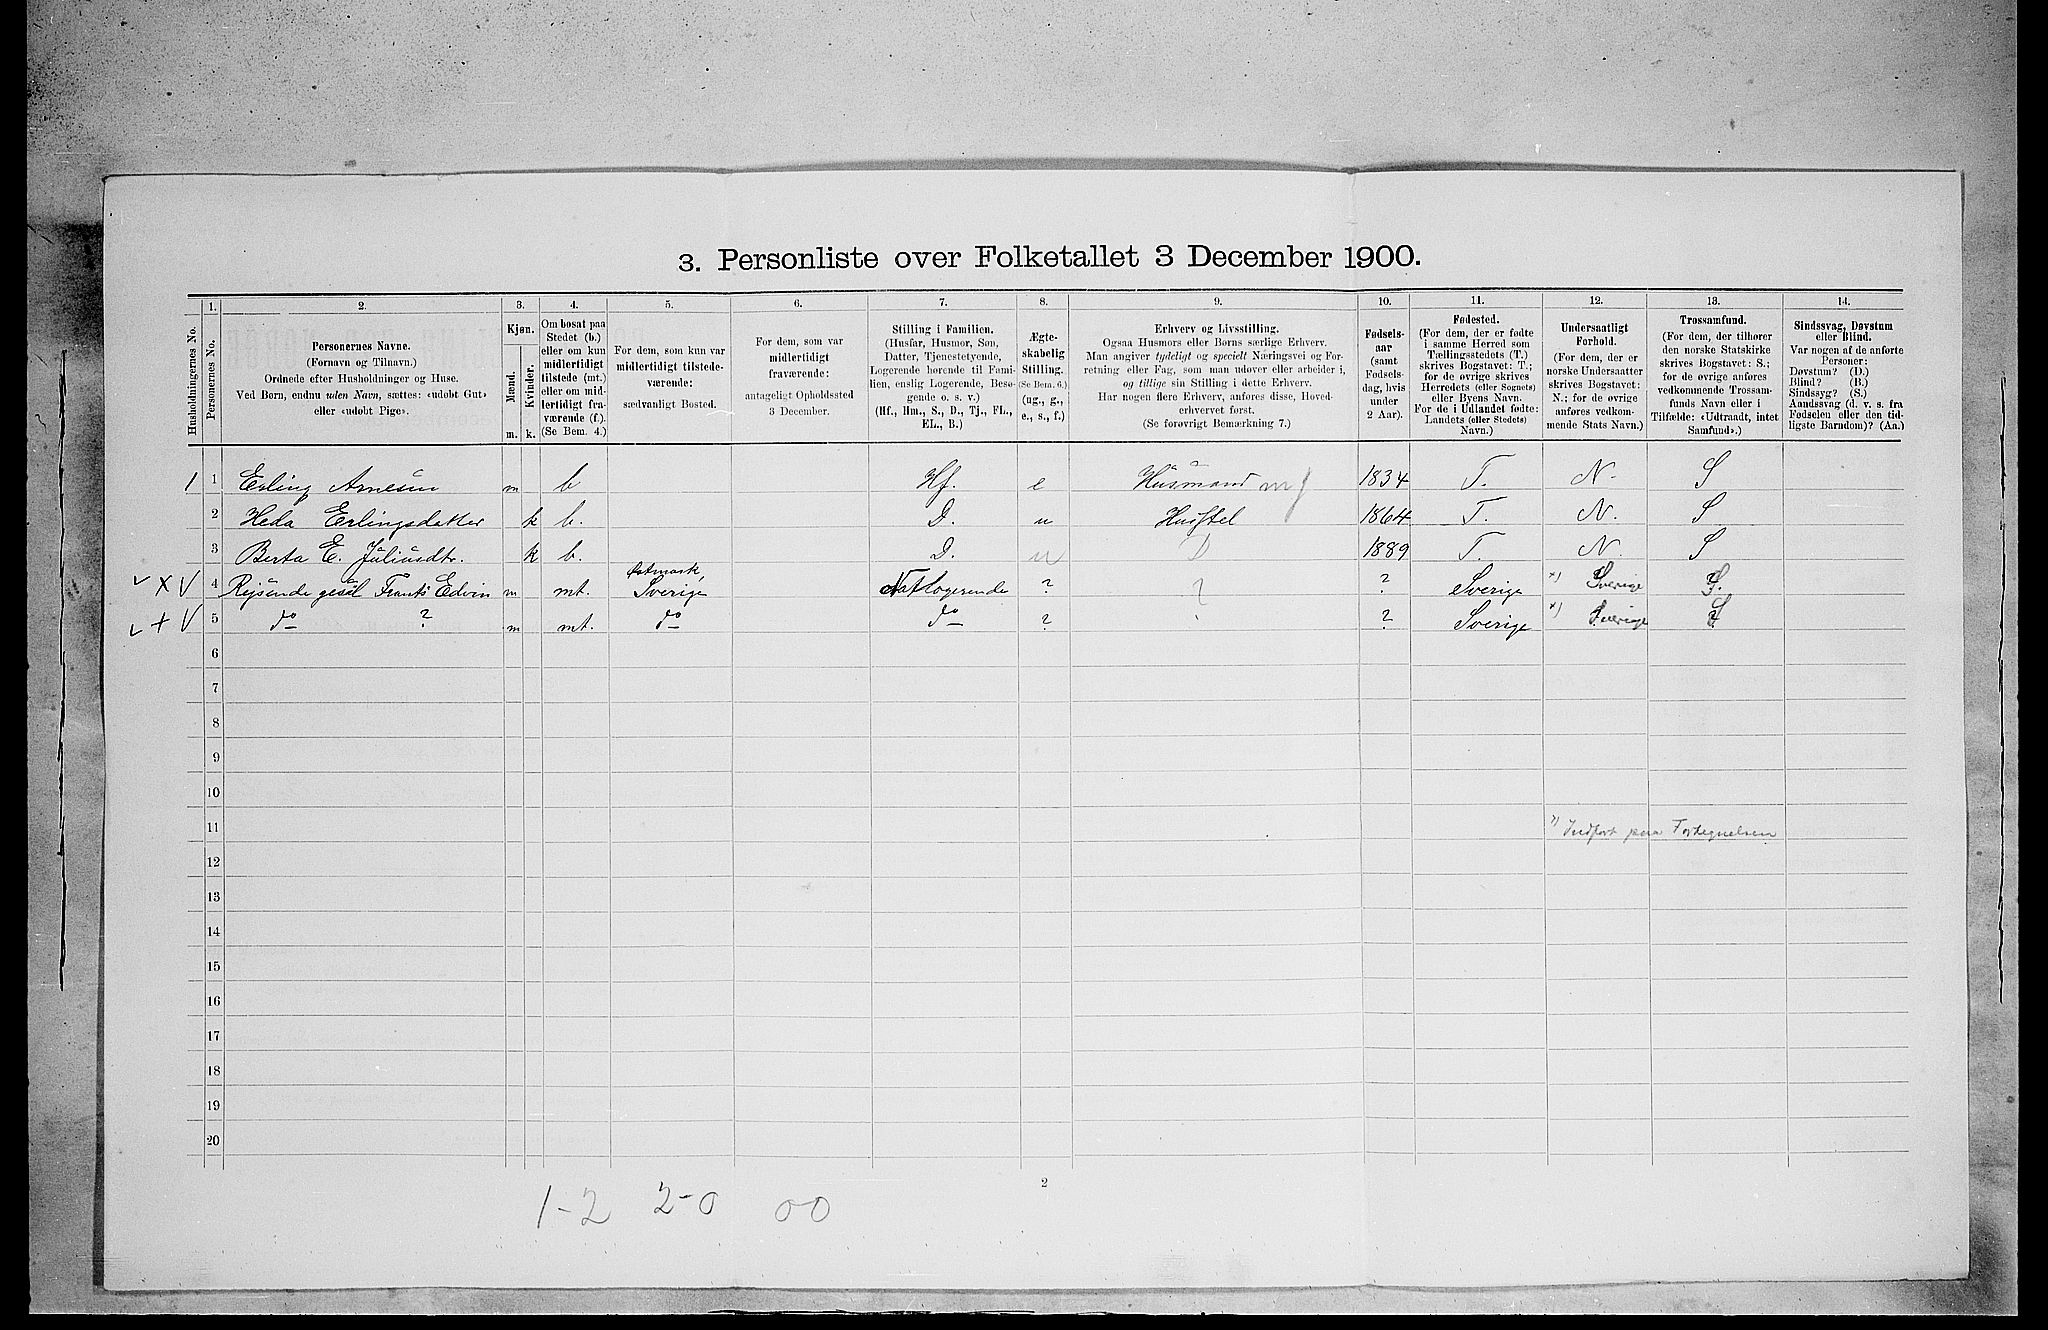 3. Personliste over Folketallet 3 December 1900.
1. 2. 3. 4. 5. 6. 7. 8. 9. 10. 11. 12. 13. 14.
Husholdningernes No.
Personernes No.
Personernes Navne.
(Fornavn og Tilnavn.)
Ordnede efter Husholdninger og Huse.
Ved Børn, endnu uden Navn, sættes: «udøbt Gut»
eller «udøbt Pige».
Kjøn.
Mænd.
Kvinder.
m. k.
Om bosat paa
Stedet (b.)
eller om kun
midlertidigt
tilstede (mt.)
eller om mid-
lertidigt fra-
værende (f.).
(Se Bem. 4.)
For dem, som kun var
midlertidigt tilstede-
værende:
sædvanligt Bosted.
For dem, som var
midlertidigt
fraværende:
antageligt Opholdssted
3 December.
Stilling i Familien.
(Husfar, Husmor, Søn,
Datter, Tjenestetyende,
Logerende hørende til Fami-
lien, enslig Logerende, Besø-
gende o. s. v.)
(Hf., Hm., S., D., Tj., FL.,
EL., B.)
Ægte-
skabelig
Stilling.
(Se Bem. 6.)
(ug., g.,
e., s., f.)
Erhverv og Livsstilling.
Ogsaa Husmors eller Børns særlige Erhverv.
Man angiver tydeligt og specielt Næringsvei og For-
retning eller Fag, som man udøver eller arbeider i,
og tillige sin Stilling i dette Erhverv.
Har nogen flere Erhverv, anføres disse, Hoved-
erhvervet først.
(Se forøvrigt Bemærkning 7.)
Fødsels-
aar
(samt
Fødsels-
dag, hvis
under
2 Aar).
Fødested.
(For dem, der er fødte
i samme Herred som
Tællingsstedets (T.)
skrives Bogstavet: T.;
for de øvrige skrives
Herredets (eller Sognets)
eller Byens Navn.
For de i Udlandet fødte:
Landets (eller Stedets)
Navn.)
Undersaatligt
Forhold.
(For dem, der er
norske Undersaatter
skrives Bogstavet:
N.; for de øvrige
anføres vedkom-
mende Stats Navn.)
Trossamfund.
(For dem, der tilhører
den norske Statskirke
skrives Bogstavet: S.;
for de øvrige anføres
vedkommende Trossam-
funds Navn eller i
Tilfælde: «Udtraadt, intet
Samfund».)
Sindssvag, Døvstum
eller Blind.
Var nogen af de anførte
Personer:
Døvstum? (D.)
Blind? (B.)
Sindssyg? (S.)
Aandssvag (d. v. s. fra
Fødselen eller den tid-
ligste Barndom)? (Aa.)
1 1 Erling Arnesen m b Hf. e Husmand 1834 T. N. S
2 Heda Erlingsdatter k b. D. u Husstel 1864 T. N. S
3 Berta E. Juliusdtr. k b. D. u D 1889 T. N. S
Østmark,
4 Rejsende gesel Frants Edvin m mt. Sverige Natlogerende ? ? ? Sverige x) Sverige S.
5 do ? m mt. do do ? ? Sverige x) Sverige S
6
7
8
9
10
11 x) Indført paa Fortegnelsen
12
13
14
15
16
17
18
19
20
2
1-2 2-0 00